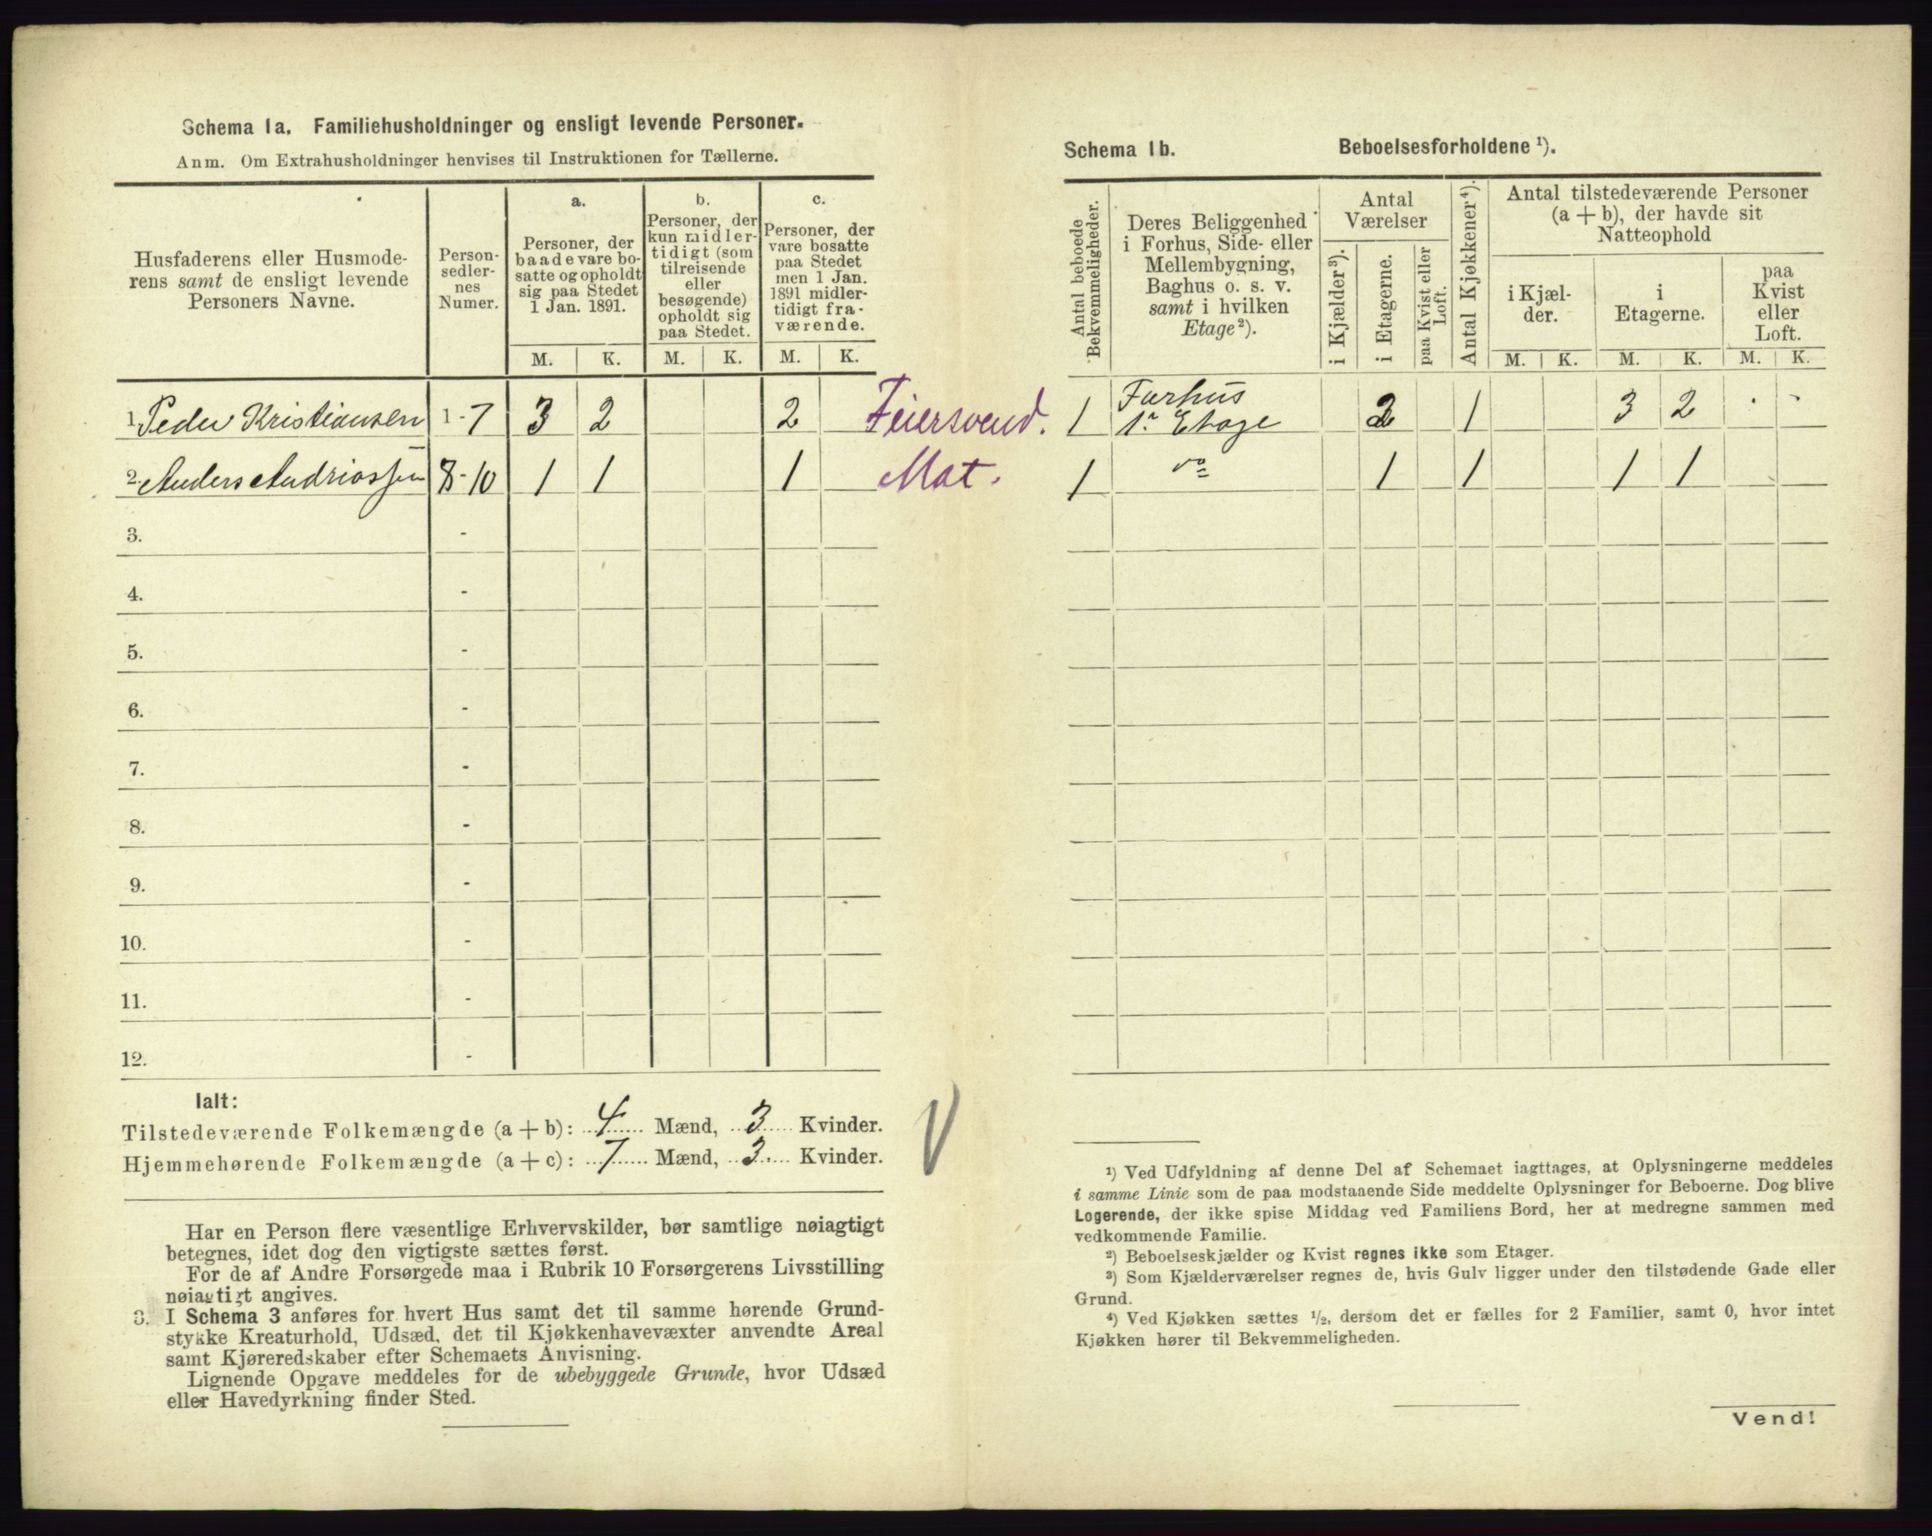 Schema 1a. Familiehusholdninger og ensligt levende Personer.
Anm. Om Extrahusholdninger henvises til Instruktionen for Tællerne.
Husfaderens eller Husmode-
rens samt de ensligt levende
Personers Navne.
Person-
sedler-
nes
Numer.
a.
Personer, der
baade vare bo-
satte og opholdt
sig paa Stedet
1 Jan. 1891.
b.
Personer, der
kun midler-
tidigt (som
tilreisende
eller
besøgende)
opholdt sig
paa Stedet.
c.
Personer, der
vare bosatte
paa Stedet
men 1 Jan.
1891 midler-
tidigt fra-
værende.
M. K. M. K. M. K.
1. Peder Kristiansen 1-7 3 2 2 Feiersvend.
2. Anders Andriassen 8-10 1 1 1 Mat.
3. -
4. -
5. -
6. -
7. -
8. -
9. -
10. -
11. -
12. -
Ialt:
Tilstedeværende Folkemængde (a + b): 4 Mænd, 3 Kvinder.
Hjemmehørende Folkemængde (a + c): 7 Mænd, 3. Kvinder.
Har en Person flere væsentlige Erhvervskilder, bør samtlige nøiagtigt
betegnes, idet dog den vigtigste sættes først.
For de af Andre Forsørgede maa i Rubrik 10 Forsørgerens Livsstilling
nøiagtigt angives.
3. I Schema 3 anføres for hvert Hus samt det til samme hørende Grund-
stykke Kreaturhold, Udsæd, det til Kjøkkenhavevæxter anvendte Areal
samt Kjøreredskaber efter Schemaets Anvisning.
Lignende Opgave meddeles for de ubebyggede Grunde, hvor Udsæd
eller Havedyrkning finder Sted.
Schema 1b. Beboelsesforholdene ¹).
Antal beboede
Bekvemmeligheder.
Deres Beliggenhed
i Forhus, Side- eller
Mellembygning,
Baghus o. s. v.
samt i hvilken
Etage²).
Antal
Værelser
i Kjælder³).
i Etagerne.
paa Kvist eller
Loft.
Antal Kjøkkener⁴).
Antal tilstedeværende Personer
(a + b), der havde sit
Natteophold
i Kjæl-
der.
i
Etagerne.
paa
Kvist
eller
Loft.
M. K. M. K. M. K.
1 Forhus
1ste Etage 2 1 3 2 . -
1 do 1 1 1 1
¹) Ved Udfyldning af denne Del af Schemaet iagttages, at Oplysningerne meddeles
i samme Linie som de paa modstaaende Side meddelte Oplysninger for Beboerne. Dog blive
Logerende, der ikke spise Middag ved Familiens Bord, her at medregne sammen med
vedkommende Familie.
²) Beboelseskjælder og Kvist regnes ikke som Etager.
³) Som Kjælderværelser regnes de, hvis Gulv ligger under den tilstødende Gade eller
Grund.
⁴) Ved Kjøkken sættes ¹/₂, dersom det er fælles for 2 Familier, samt 0, hvor intet
Kjøkken hører til Bekvemmeligheden.
Vend!